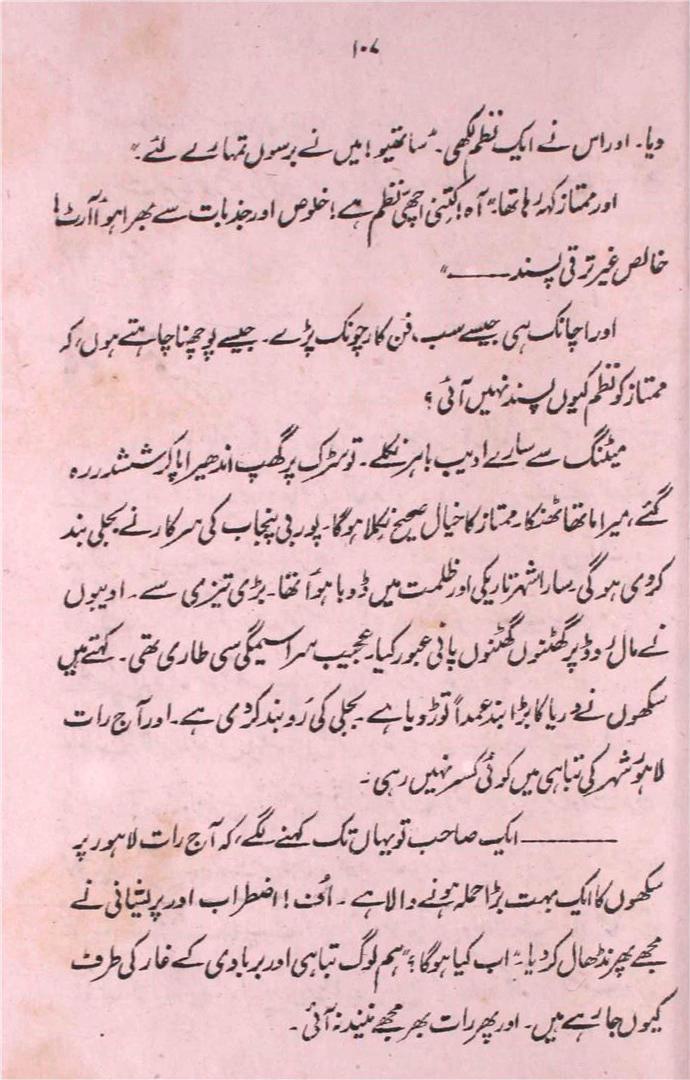 ۱۰۷
دیا۔ اور اس نے ایک نظم لکھی۔ "ساتھیو! میں نے برسوں تمہارے لئے۔"
اور ممتاز کہہ رہا تھا۔ "آہ! کتنی اچھی نظم ہے! خلوص اور جذبات سے بھرا ہوا آرٹ!
خالص غیر ترقی پسند ——"
اور اچانک ہی جیسے سب، فن کار چونک پڑے۔ جیسے پوچھنا چاہتے ہوں، کہ
ممتاز کو نظم کیوں پسند نہیں آئی؟
میٹنگ سے سارے ادیب باہر نکلے۔ تو سڑک پر گھپ اندھیرا پا کر ششدر رہ
گئے، میرا ماتھا ٹھنکا۔ ممتاز کا خیال صحیح نکلا ہوگا۔ پوربی پنجاب کی سرکار نے بجلی بند
کر دی ہوگی۔ سارا شہر تاریکی اور ظلمت میں ڈوبا ہوا تھا۔ بڑی تیزی سے۔ ادیبوں
نے مال روڈ پر گھٹنوں گھٹنوں پانی عبور کیا۔ عجیب سراسیمگی سی طاری تھی۔ کہتے ہیں
سکھوں نے دریا کا بڑا بند عمداً توڑ دیا ہے۔ بجلی کی رَو بند کر دی ہے۔ اور آج رات
لاہور شہر کی تباہی میں کوئی کسر نہیں رہی۔
—— ایک صاحب تو یہاں تک کہنے لگے، کہ آج رات لاہور پر
سکھوں کا ایک بہت بڑا حملہ ہونے والا ہے۔ اُف! اضطراب اور پریشانی نے
مجھے پھر نڈھال کر دیا۔ "اب کیا ہوگا؟" ہم لوگ تباہی اور بربادی کے غار کی طرف
کیوں جا رہے ہیں۔ اور پھر رات بھر مجھے نیند نہ آئی۔